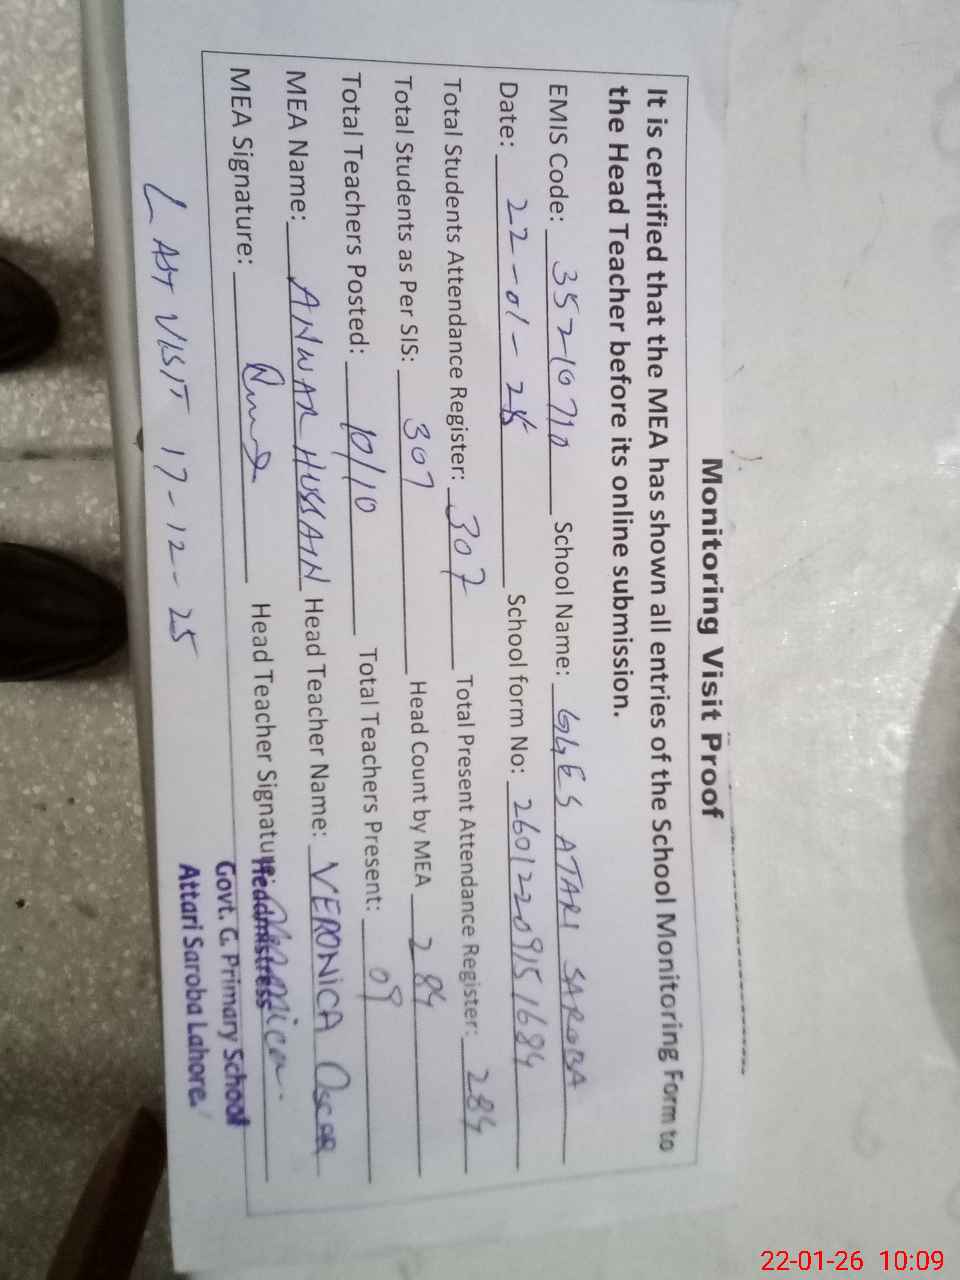 Monitoring Visit Proof
It is certified that the MEA has shown all entries of the School Monitoring Form to
the Head Teacher before its online submission.
EMIS Code: 35210710 School Name: GGES ATARI SAROBA
Date: 22-01-26 School form No: 26012209151684
Total Students Attendance Register: 307 Total Present Attendance Register: 284
Total Students as Per SIS: 307 Head Count by MEA 284
Total Teachers Posted: 10/10 Total Teachers Present: 09
MEA Name: ANWAR HUSSAIN Head Teacher Name: VERONICA Oscar
MEA Signature: Head Teacher Signature: Veronica
Headmistress
Govt. G. Primary School
Attari Saroba Lahore.
LAST VISIT 17-12-25
22-01-26 10:09